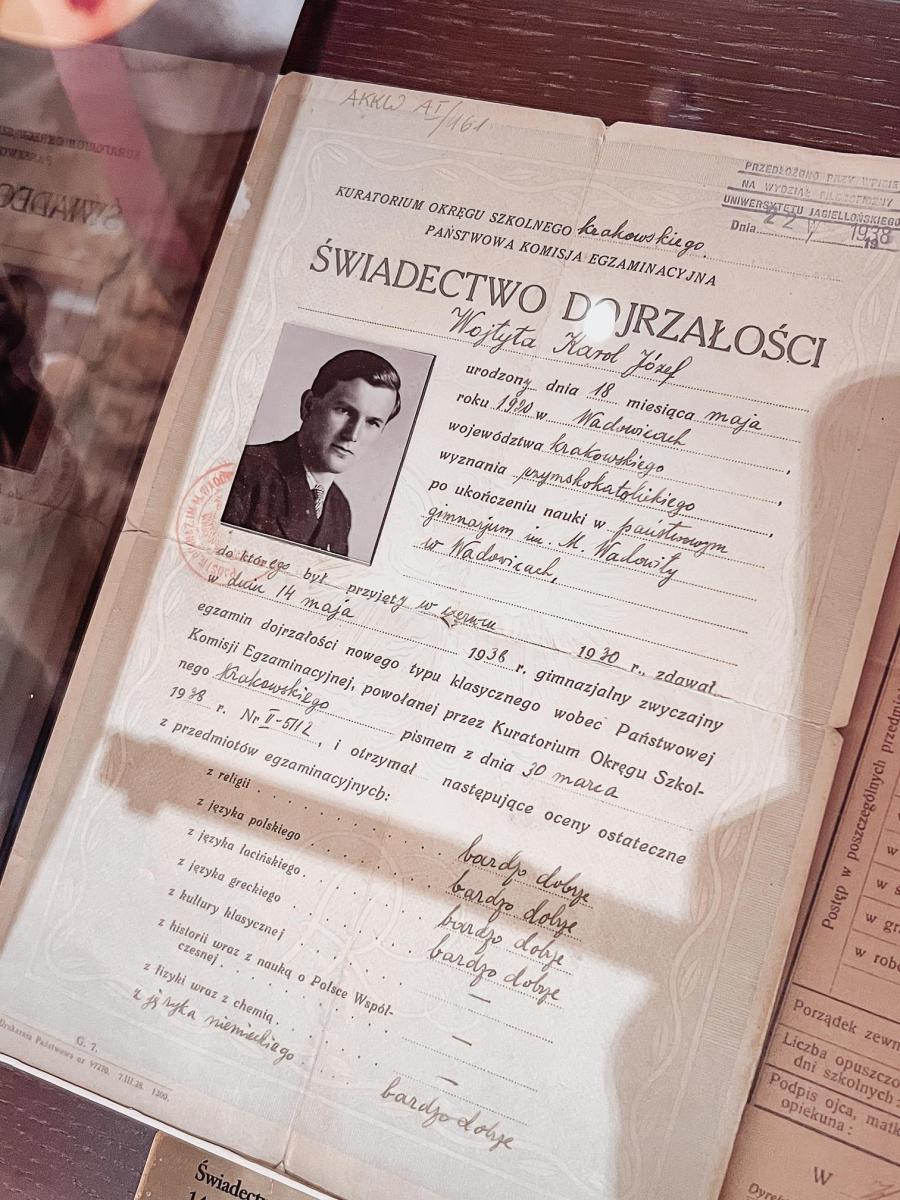 AKKW AI/161
PRZEDŁOŻONO PRZY WPISIE
NA WYDZIAŁ FILOZOFICZNY
UNIWERSYTETU JAGIELLOŃSKIEGO
Dnia 22 V 1938
KURATORIUM OKRĘGU SZKOLNEGO krakowskiego.
PAŃSTWOWA KOMISJA EGZAMINACYJNA
ŚWIADECTWO DOJRZAŁOŚCI
Wojtyła Karol Józef
urodzony dnia 18 miesiąca maja
roku 1920 w Wadowicach,
województwa krakowskiego,
wyznania rzymskokatolickiego,
po ukończeniu nauki w państwowym
gimnazjum im. M. Wadowity
w Wadowicach,
do którego był przyjęty w czerwcu 1930 r., zdawał
w dniu 14 maja 1938 r. gimnazjalny zwyczajny
egzamin dojrzałości nowego typu klasycznego wobec Państwowej
Komisji Egzaminacyjnej, powołanej przez Kuratorium Okręgu Szkol-
nego Krakowskiego pismem z dnia 30 marca
1938 r. Nr II-5712, i otrzymał następujące oceny ostateczne
z przedmiotów egzaminacyjnych:
z religii . . . . bardzo dobrze
z języka polskiego . . . . bardzo dobrze
z języka łacińskiego . . . . bardzo dobrze
z języka greckiego . . . . bardzo dobrze
z kultury klasycznej . . . . —
z historii wraz z nauką o Polsce Współ-
czesnej . . . . —
z fizyki wraz z chemią . . . . —
z języka niemieckiego . . . . bardzo dobrze
G. 7.
Drukarnia Państwowa nr 97270. 7.III.38. 1200.
Postęp w poszczególnych przedmio
Porządek zewn
Liczba opuszczo
dni szkolnych:
Podpis ojca, matk
opiekuna:
W
Dyrek
Świadect